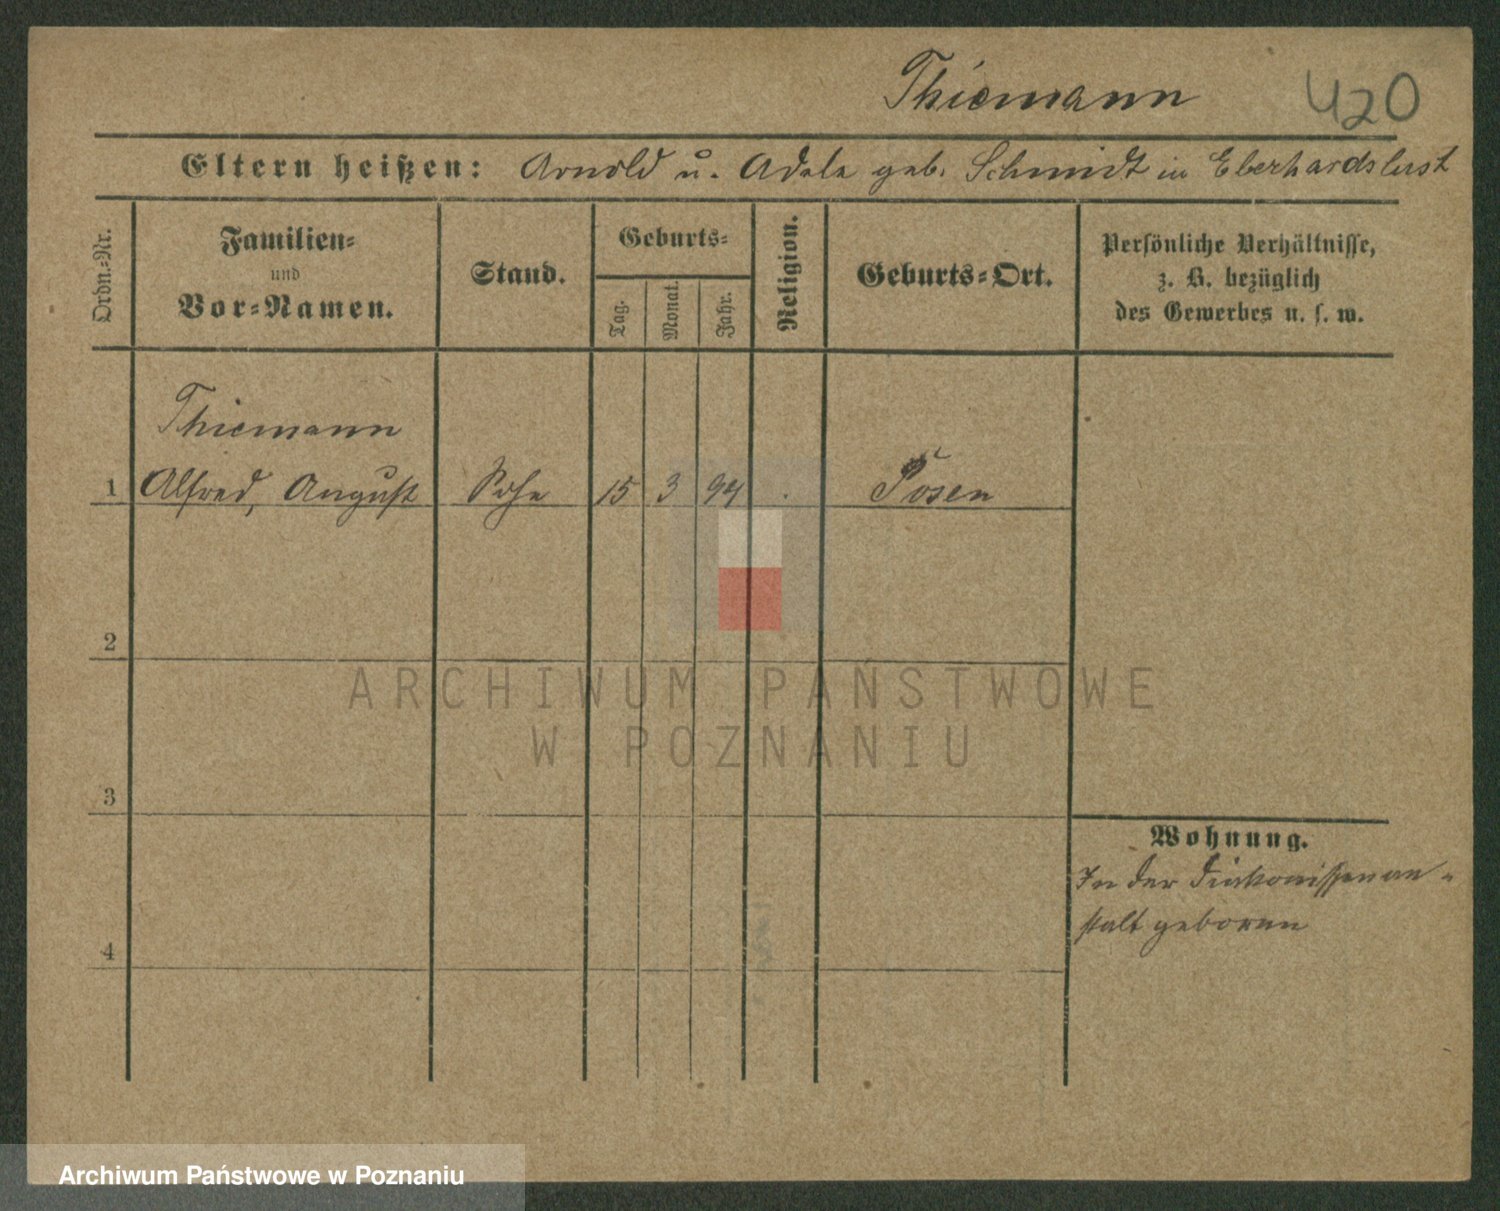 Thiemann 420
Eltern heißen: Arnold u. Adele geb. Schmidt in Eberhardslust
Ordn.-Nr.
Familien-
und
Vor-Namen.
Stand.
Geburts-
Tag.
Monat.
Jahr.
Religion.
Geburts-Ort.
Persönliche Verhältnisse,
z. B. bezüglich
des Gewerbes u. s. w.
Thiemann
1 Alfred, August Sohn 15 3 94 . Posen
2
ARCHIWUM PAŃSTWOWE
W POZNANIU
3
Wohnung.
In der Diakonissenan-
stalt geboren
4
Archiwum Państwowe w Poznaniu